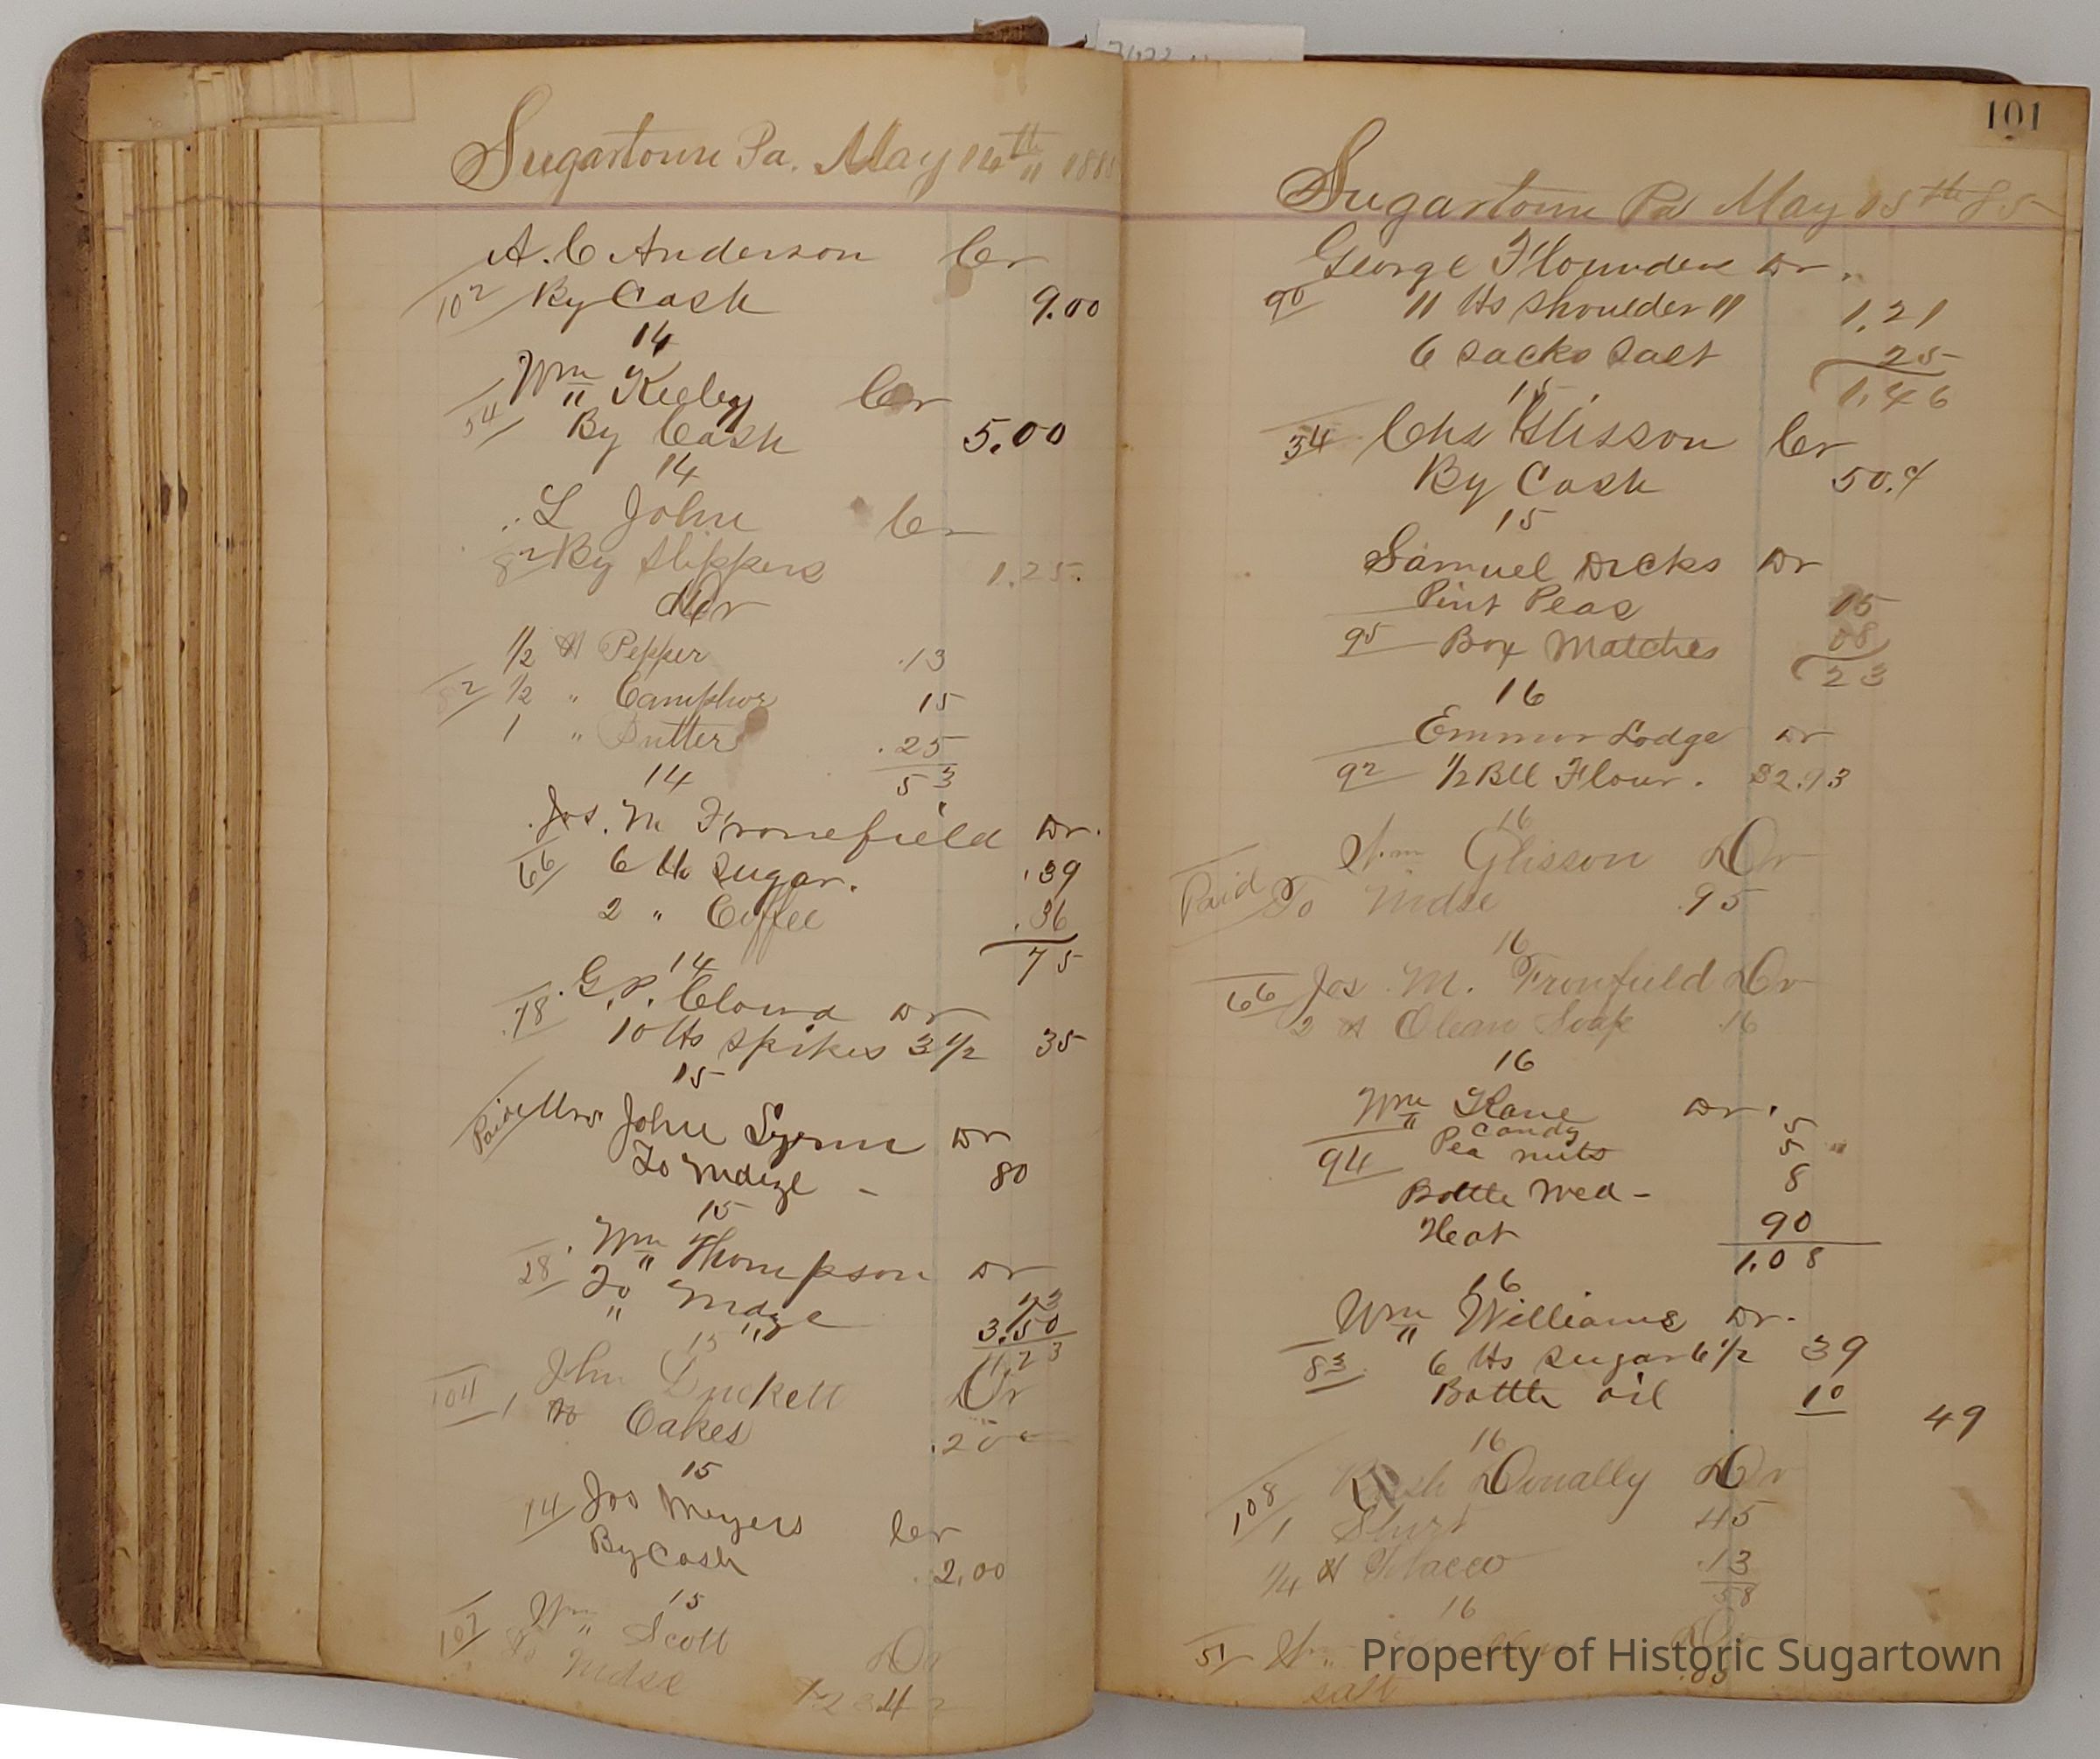 Sugartown Pa. May 14th 188
A. C Anderson Cr
102 By Cash 9.00
14
Wm Keeley Cr
54 By Cash 5.00
14
L John Cr
82 By Slippers 1.25
Dr
1/2 # Pepper .13
82 1/2 " Camphor 15
1 " Butter .25
53
14
Jos. M Fronefield Dr.
66 6 lbs Sugar. .39
2 " Coffee .36
75
14
G. P. Cloud Dr
78 10 lbs Spikes 3 1/2 35
15
Paid Mrs John Lynn Dr
To Mdze - 80
15
Wm Thompson Dr
28 To Mdze
" " 3.50
15
John Duckett Dr
104 1 # Cakes .20
15
14 Jos Meyers Cr
By Cash 2.00
15
107 Wm Scott Dr
To Mdse
101
Sugartown Pa May 15th 85
George Flounders Dr.
90 11 lbs Shoulder 11 1.21
6 Sacks Salt 25
1.46
15
34 Chs Glisson Cr
By Cash 50.¢
15
Samuel Dicks Dr
Pint Peas 15
95 Box Matches 08
23
16
Emmor Lodge Dr
92 1/2 Bll Flour. $2.93
16
Wm Glisson Dr
Paid To Mdse .95
16
66 Jos. M. Fronfield Dr
2 # Olean Soap .16
16
Wm Kane Dr.
Candy 5
94 Pea nuts 5
Bottle Med- 8
Heat 90
1.08
16
Wm Williams Dr.
83 6 lbs Sugar 6 1/2 39
Bottle oil 10
49
16
108 Donally Dr
1 Shirt 45
1/4 # Tobacco .13
58
16
51 Wm Dr
Salt
Property of Historic Sugartown